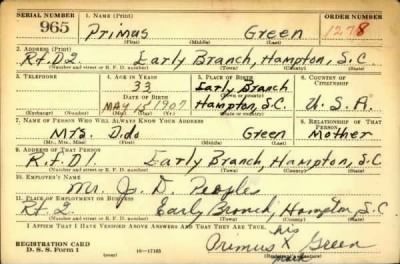 SERIAL NUMBER 1. NAME (Print) ORDER NUMBER
965 Primus Green 1278
(First) (Middle) (Last)
2. ADDRESS (Print)
R.t.D2. Early Branch, Hampton, S.C.
(Number and street or R. F. D. number) (Town) (County) (State)
3. TELEPHONE 4. AGE IN YEARS 5. PLACE OF BIRTH 6. COUNTRY OF CITIZENSHIP
33 Early Branch
DATE OF BIRTH (Town or county)
MAY 15 1907 Hampton, S.C. U.S.A.
(Exchange) (Number) (Mo.) (Day) (Yr.) (State or country)
7. NAME OF PERSON WHO WILL ALWAYS KNOW YOUR ADDRESS 8. RELATIONSHIP OF THAT PERSON
Mrs. Dido Green Mother
(Mr., Mrs., Miss) (First) (Middle) (Last)
9. ADDRESS OF THAT PERSON
R.f.D1. Early Branch, Hampton, S.C
(Number and street or R. F. D. number) (Town) (County) (State)
10. EMPLOYER'S NAME
Mr. J. D. Peoples
11. PLACE OF EMPLOYMENT OR BUSINESS
Rt. 2. Early Branch, Hampton, S.C
(Number and street or R. F. D. number) (Town) (County) (State)
I AFFIRM THAT I HAVE VERIFIED ABOVE ANSWERS AND THAT THEY ARE TRUE.
his
REGISTRATION CARD Primus X Green
D. S. S. Form 1 16—17105 mark